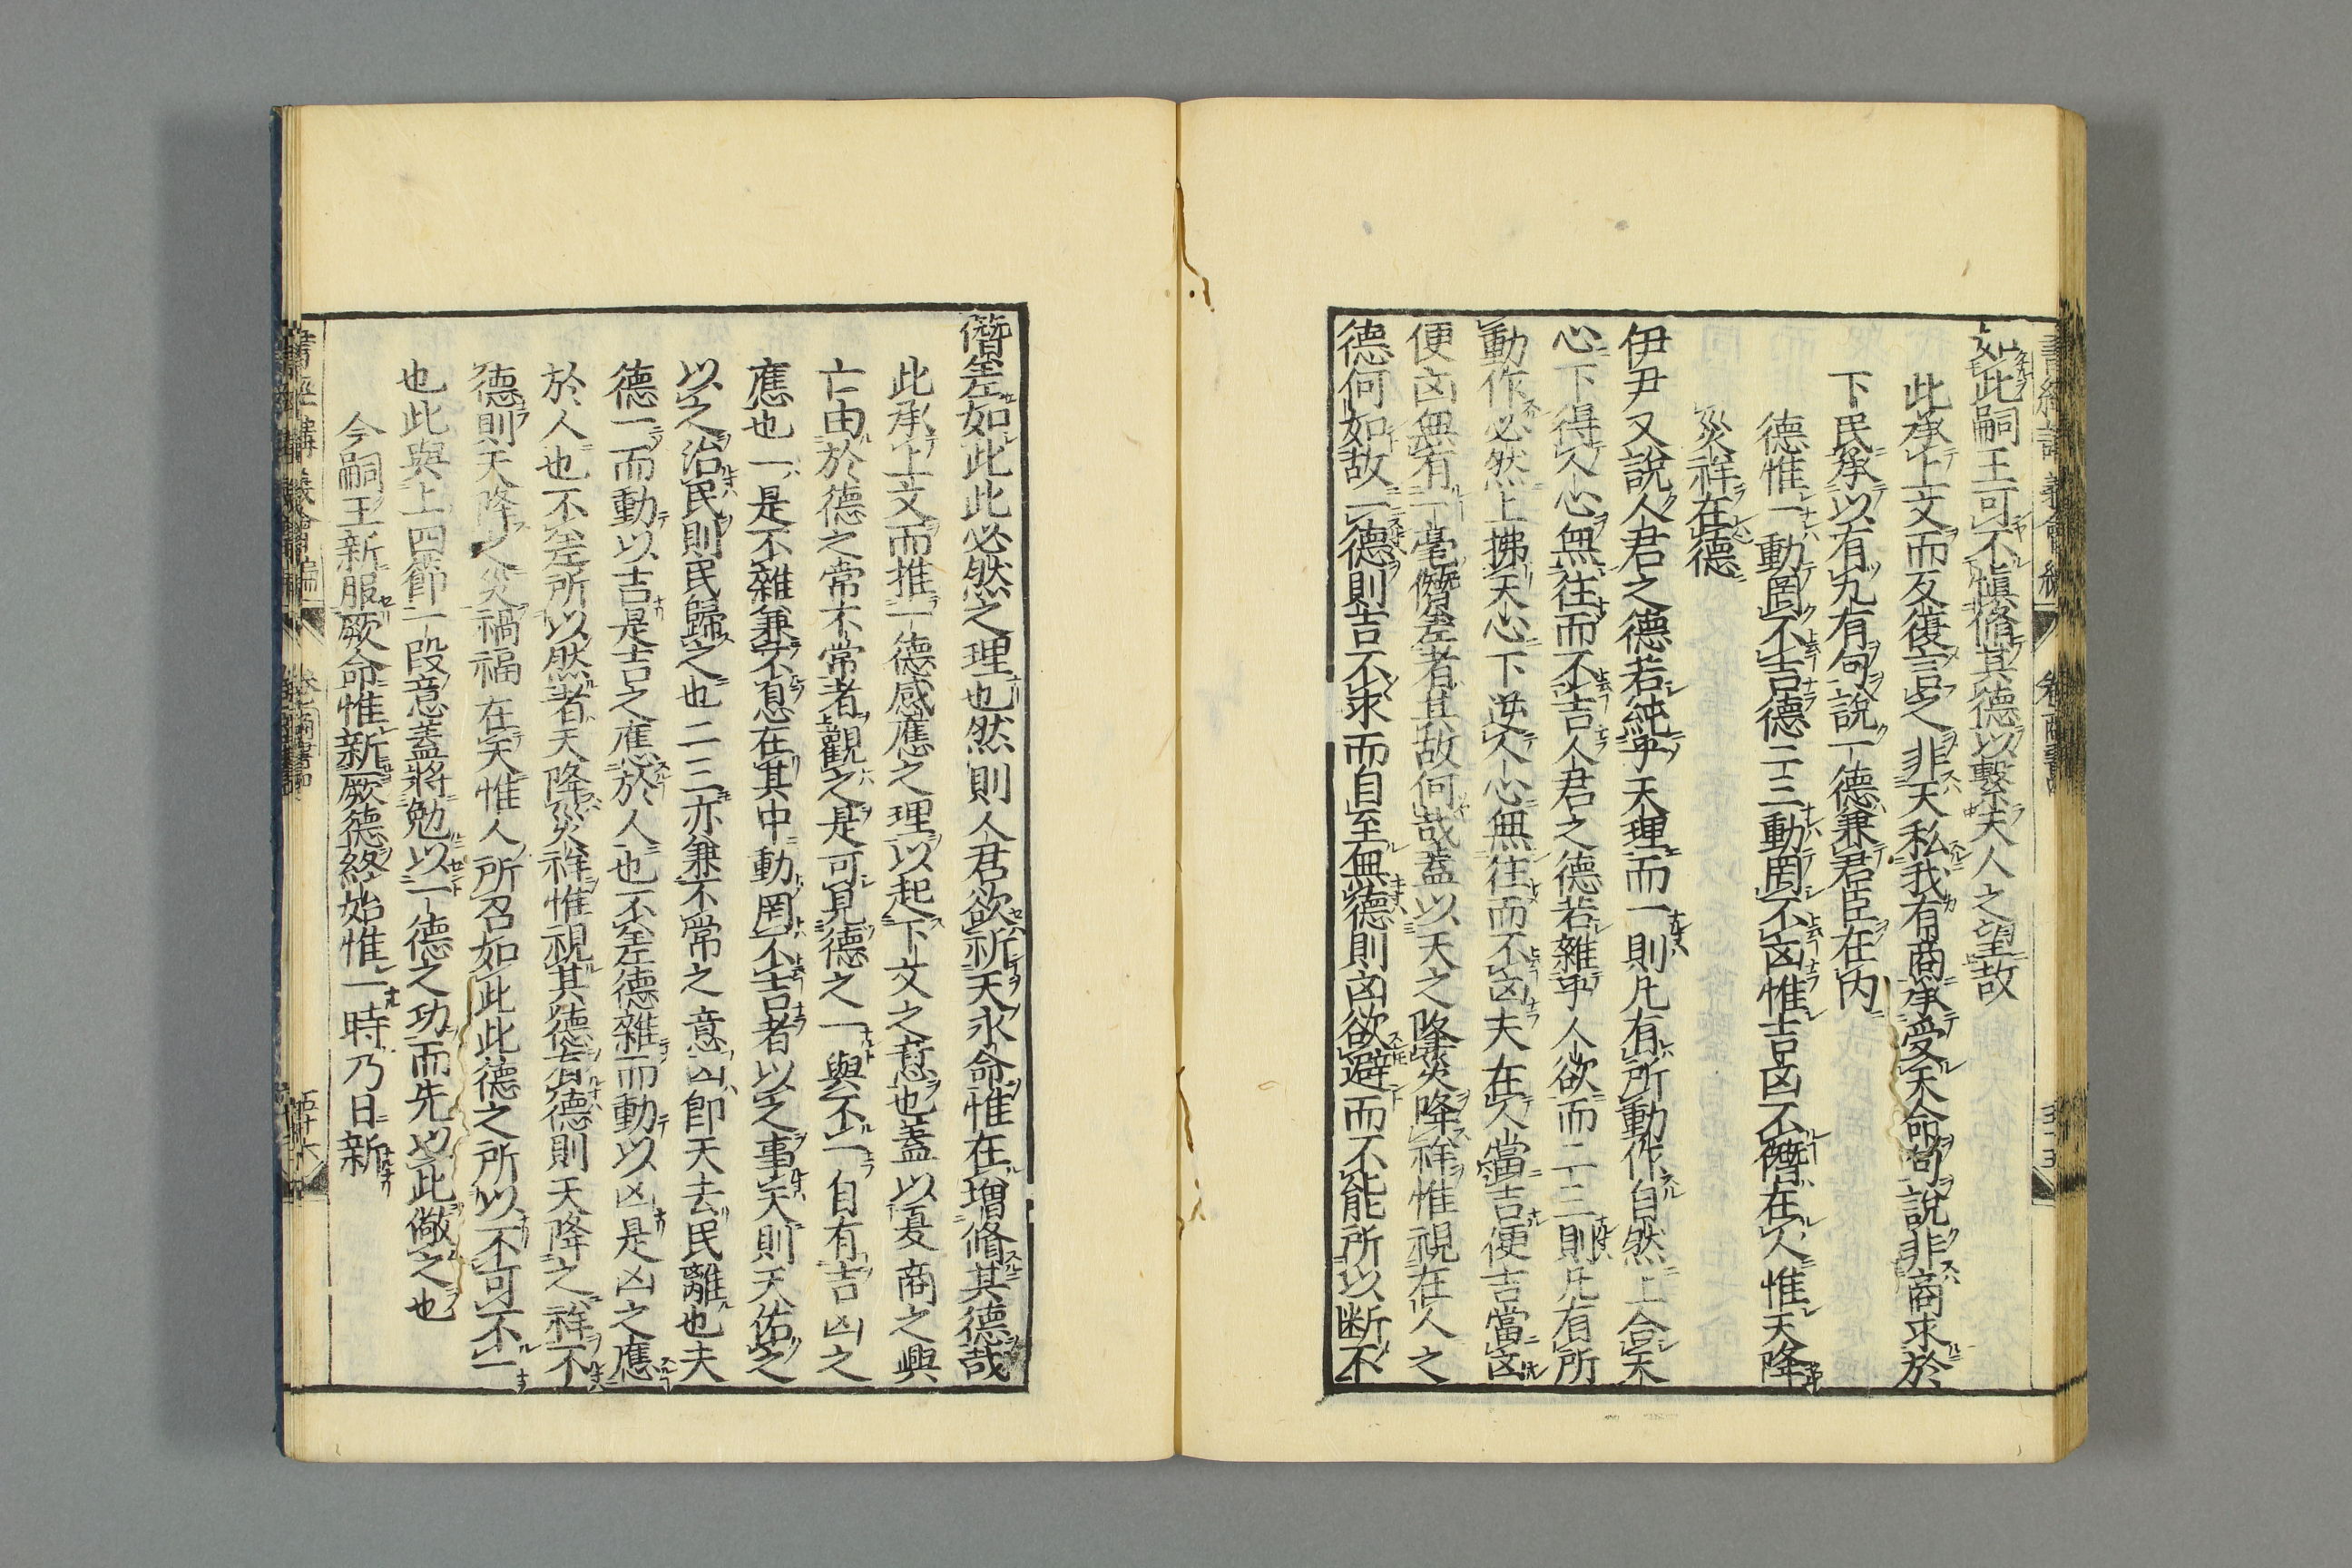 如此嗣王可不愼脩其德以繫夫人之望故
此承上文而反復言之非天私我有商承受天命句說非商求於
下民承以有九有句說一德兼君臣在內
德惟一動罔不吉德二三動罔不凶惟吉凶不僭在人惟天降
災祥在德
伊尹又說人君之德若純乎天理而一則凡有所動作自然上合天
心下得人心無往而不吉人君之德若雜乎人欲而二三則凡有所
動作必然上拂天心下逆人心無往而不凶夫在人當吉便吉當凶
便凶無有一毫僭差者其故何哉蓋以天之降災降祥惟視在人之
德何如故一德則吉不求而自至無德則凶欲避而不能所以斷不
僭差如此此必然之理也然則人君欲祈天永命惟在增脩其德哉
此承上文而推一德感應之理以起下文之意也蓋以夏商之興
亡由於德之常不常者觀之是可見德之一與不一自有吉凶之
應也一是不雜兼不息在其中動罔不吉者以之事天則天佑之
以之治民則民歸之也二三亦兼不常之意凶卽天去民離也夫
德一而動以吉是吉之應於人也不差德雜而動以凶是凶之應
於人也不差所以然者天降災祥惟視其德有德則天降之祥不
德則天降之災禍福在天惟人所召如此此德之所以不可不一
也此與上四節一段意蓋將勉以一德之功而先以此儆之也
今嗣王新服厥命惟新厥德終始惟一時乃日新